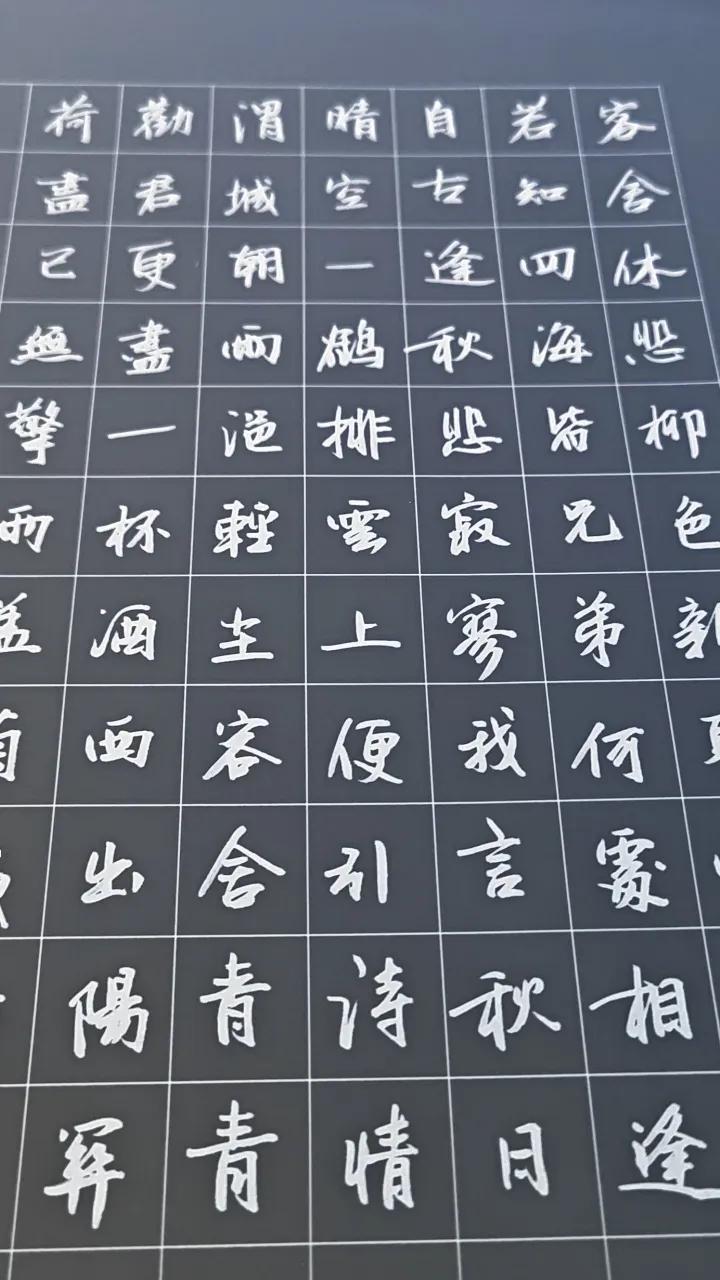 客舍休悲柳色新
若知四海皆兄弟何處相逢
自古逢秋悲寂寥我言秋日
晴空一鶴排雲上便引詩情
渭城朝雨浥輕塵客舍青青
勸君更盡一杯酒西出陽關
荷盡已無擎雨蓋菊